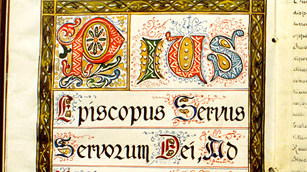 Pius
Episcopus Servus
Servorum Dei, Ad